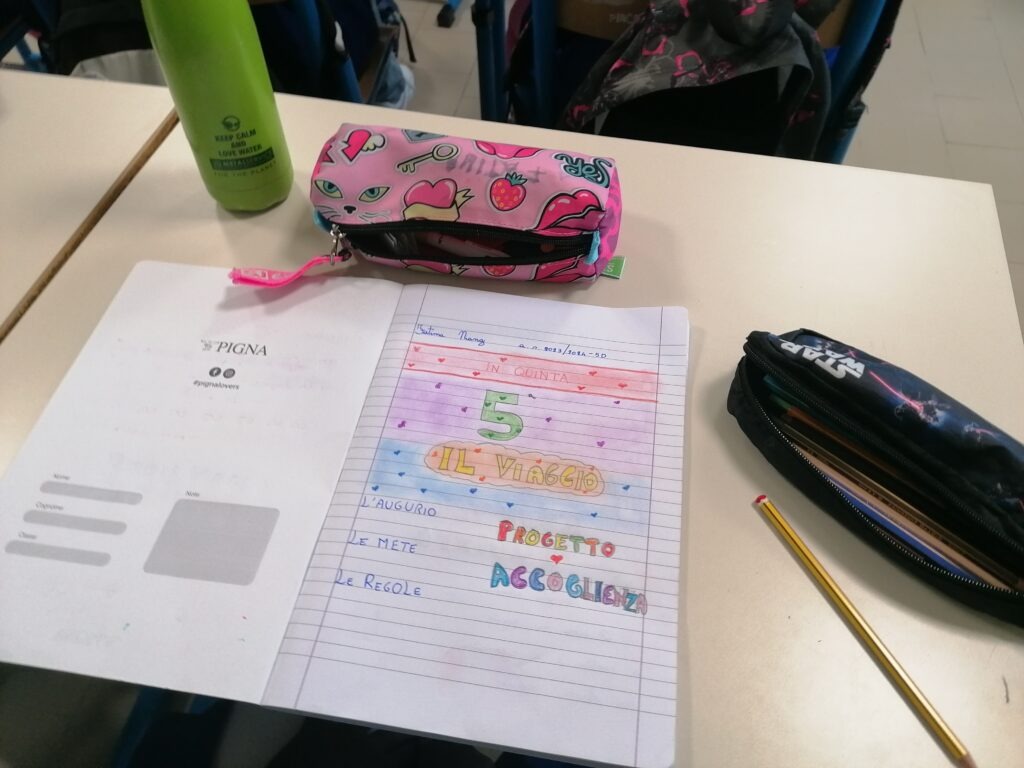 KEEP CALM
AND
LOVE WATER
FOR THE PLANET
PIGNA
#pignalovers
Nome
Cognome
Classe
Note
a.s. 2023/2024-5D
IN QUINTA
5ª
IL VIAGGIO
L'AUGURIO
LE METE
LE REGOLE
PROGETTO
ACCOGLIENZA
STAR
WARS